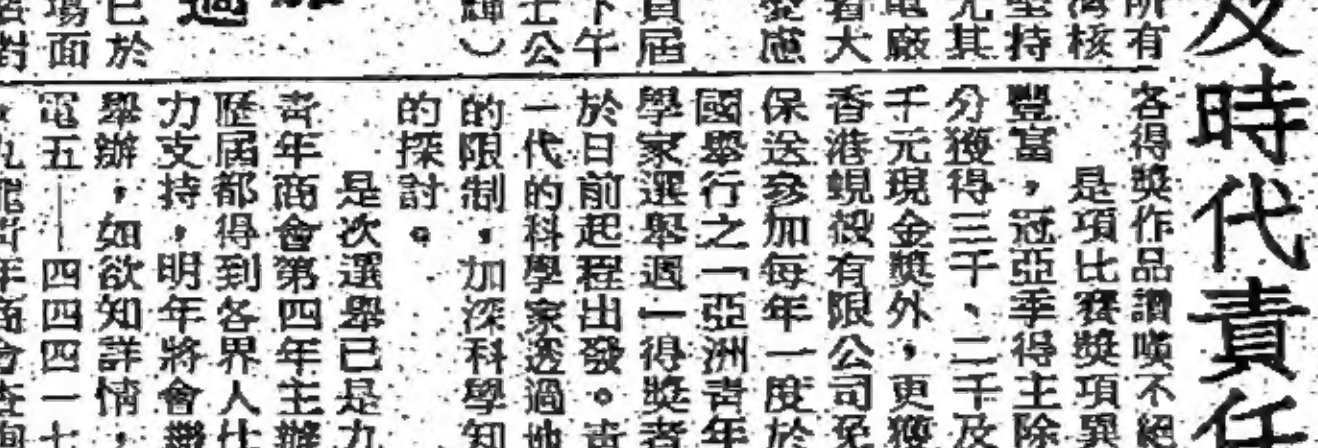 及時代責任
所有
灣核
堅持
尤其
電廠
者大
應
員屆
下午
士公
輝）
過
已於
場面
對
各得獎作品讚嘆不絕
是項比賽獎項異
豐富，冠亞季得主除
分獲得三千、二千及
千元現金獎外，更獲
香港蜆殼有限公司免
保送參加每年一度於
國舉行之「亞洲青年
學家選舉週」得獎者
於日前起程出發。青
一代的科學家透過地
的限制，加深科學知
的探討。
是次選舉已是九
青年商會第四年主辦
歷屆都得到各界人仕
力支持，明年將會繼
舉辦，如欲知詳情，
電五—四四四一七
九龍青年商會查詢